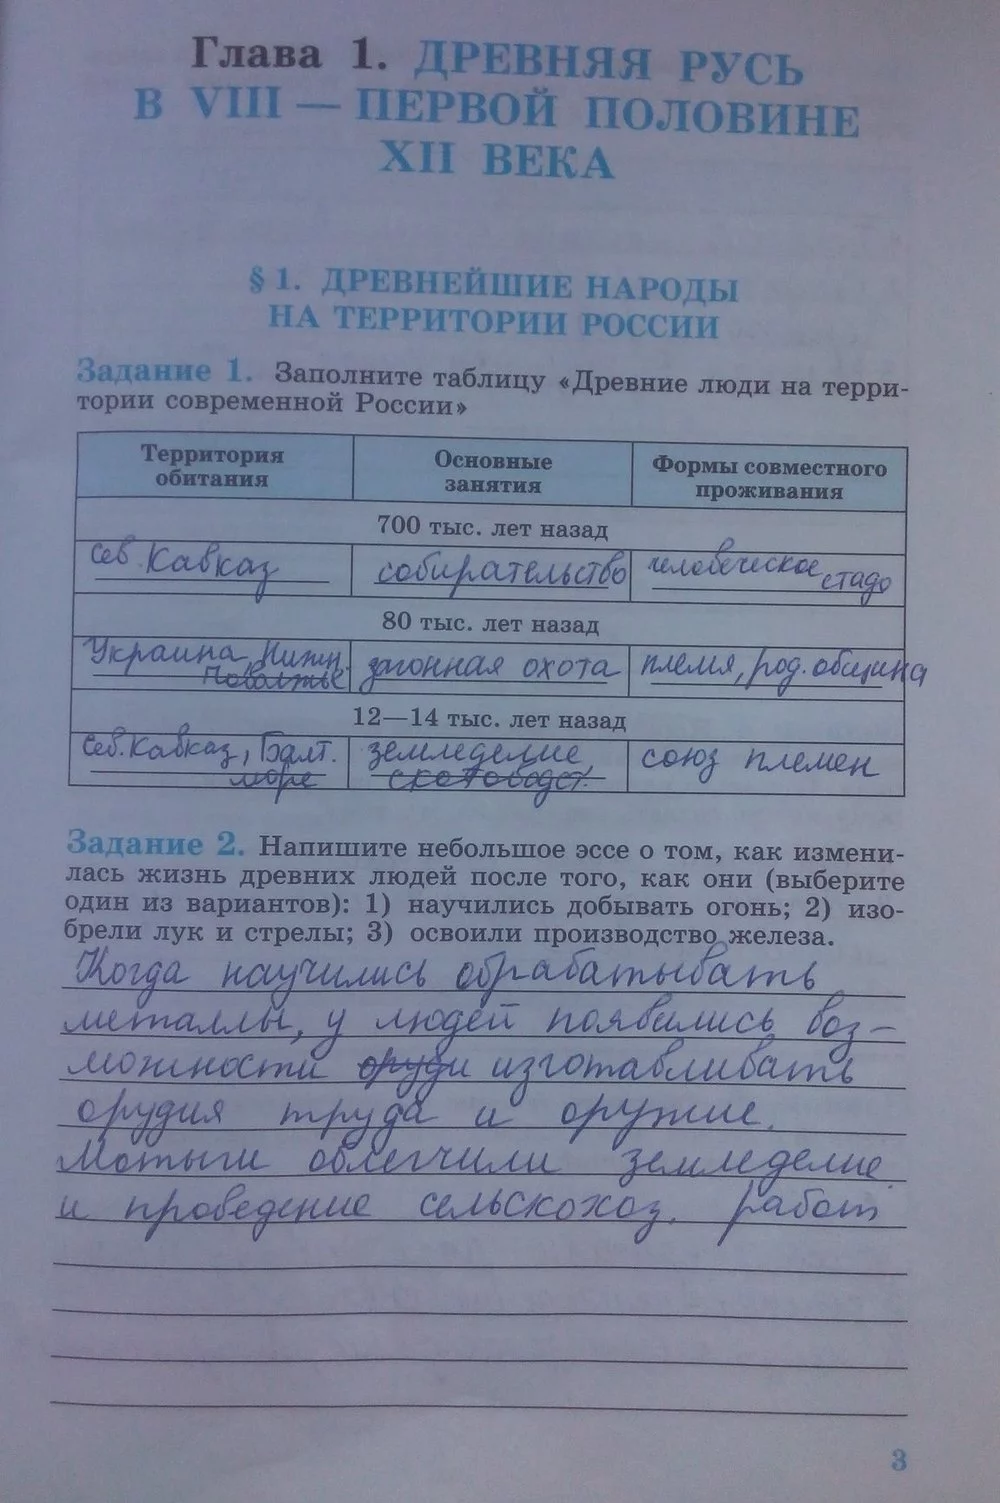 Глава 1. ДРЕВНЯЯ РУСЬ
В VIII — ПЕРВОЙ ПОЛОВИНЕ
XII ВЕКА
§ 1. ДРЕВНЕЙШИЕ НАРОДЫ
НА ТЕРРИТОРИИ РОССИИ
Задание 1. Заполните таблицу «Древние люди на терри-
тории современной России»
Территория обитания | Основные занятия | Формы совместного проживания
700 тыс. лет назад
Сев. Кавказ | собирательство | человеческое стадо
80 тыс. лет назад
Украина, Нижн. Поволжье | загонная охота | племя, род. община
12—14 тыс. лет назад
Сев. Кавказ, Балт. море | земледелие, скотоводст. | союз племен
Задание 2. Напишите небольшое эссе о том, как измени-
лась жизнь древних людей после того, как они (выберите
один из вариантов): 1) научились добывать огонь; 2) изо-
брели лук и стрелы; 3) освоили производство железа.
Когда научились обрабатывать
металлы, у людей появились воз-
можности оруди изготавливать
орудия труда и оружие.
Мотыги облегчили земледелие
и проведение сельскохоз. работ
3